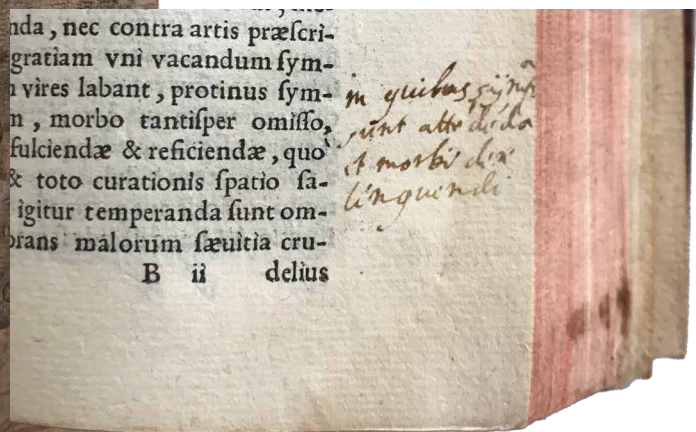 nda, nec contra artis præſcri-
gratiam vni vacandum ſym-
vires labant, protinus ſym-
, morbo tantiſper omiſſo,
fulciendæ & reficiendæ, quo
& toto curationis ſpatio ſa-
igitur temperanda ſunt om-
rans malorum ſæuitia cru-
B ii delius
in quibus
sunt
et morbi
linquendi